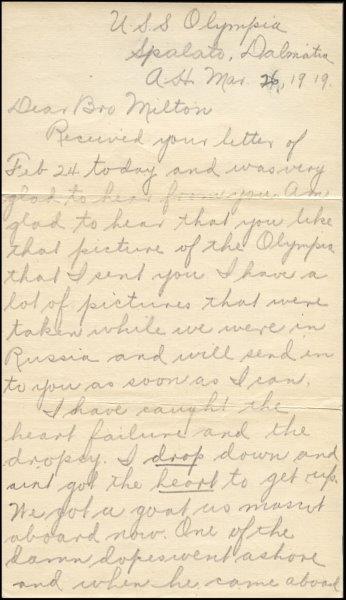 U.S.S Olympia
Spalato, Dalmatia
A.H. Mar. 26, 1919.
Dear Bro Milton
Received your letter of
Feb 24 today and was very
glad to hear from you. Am
glad to hear that you like
that picture of the Olympia
that I sent you I have a
lot of pictures that were
taken while we were in
Russia and will send em
to you as soon as I can.
I have caught the
heart failure and the
dropsy. I drop down and
aint got the heart to get up.
We got a goat as mascot
aboard now. One of the
damn dopes went ashore
and when he came aboad